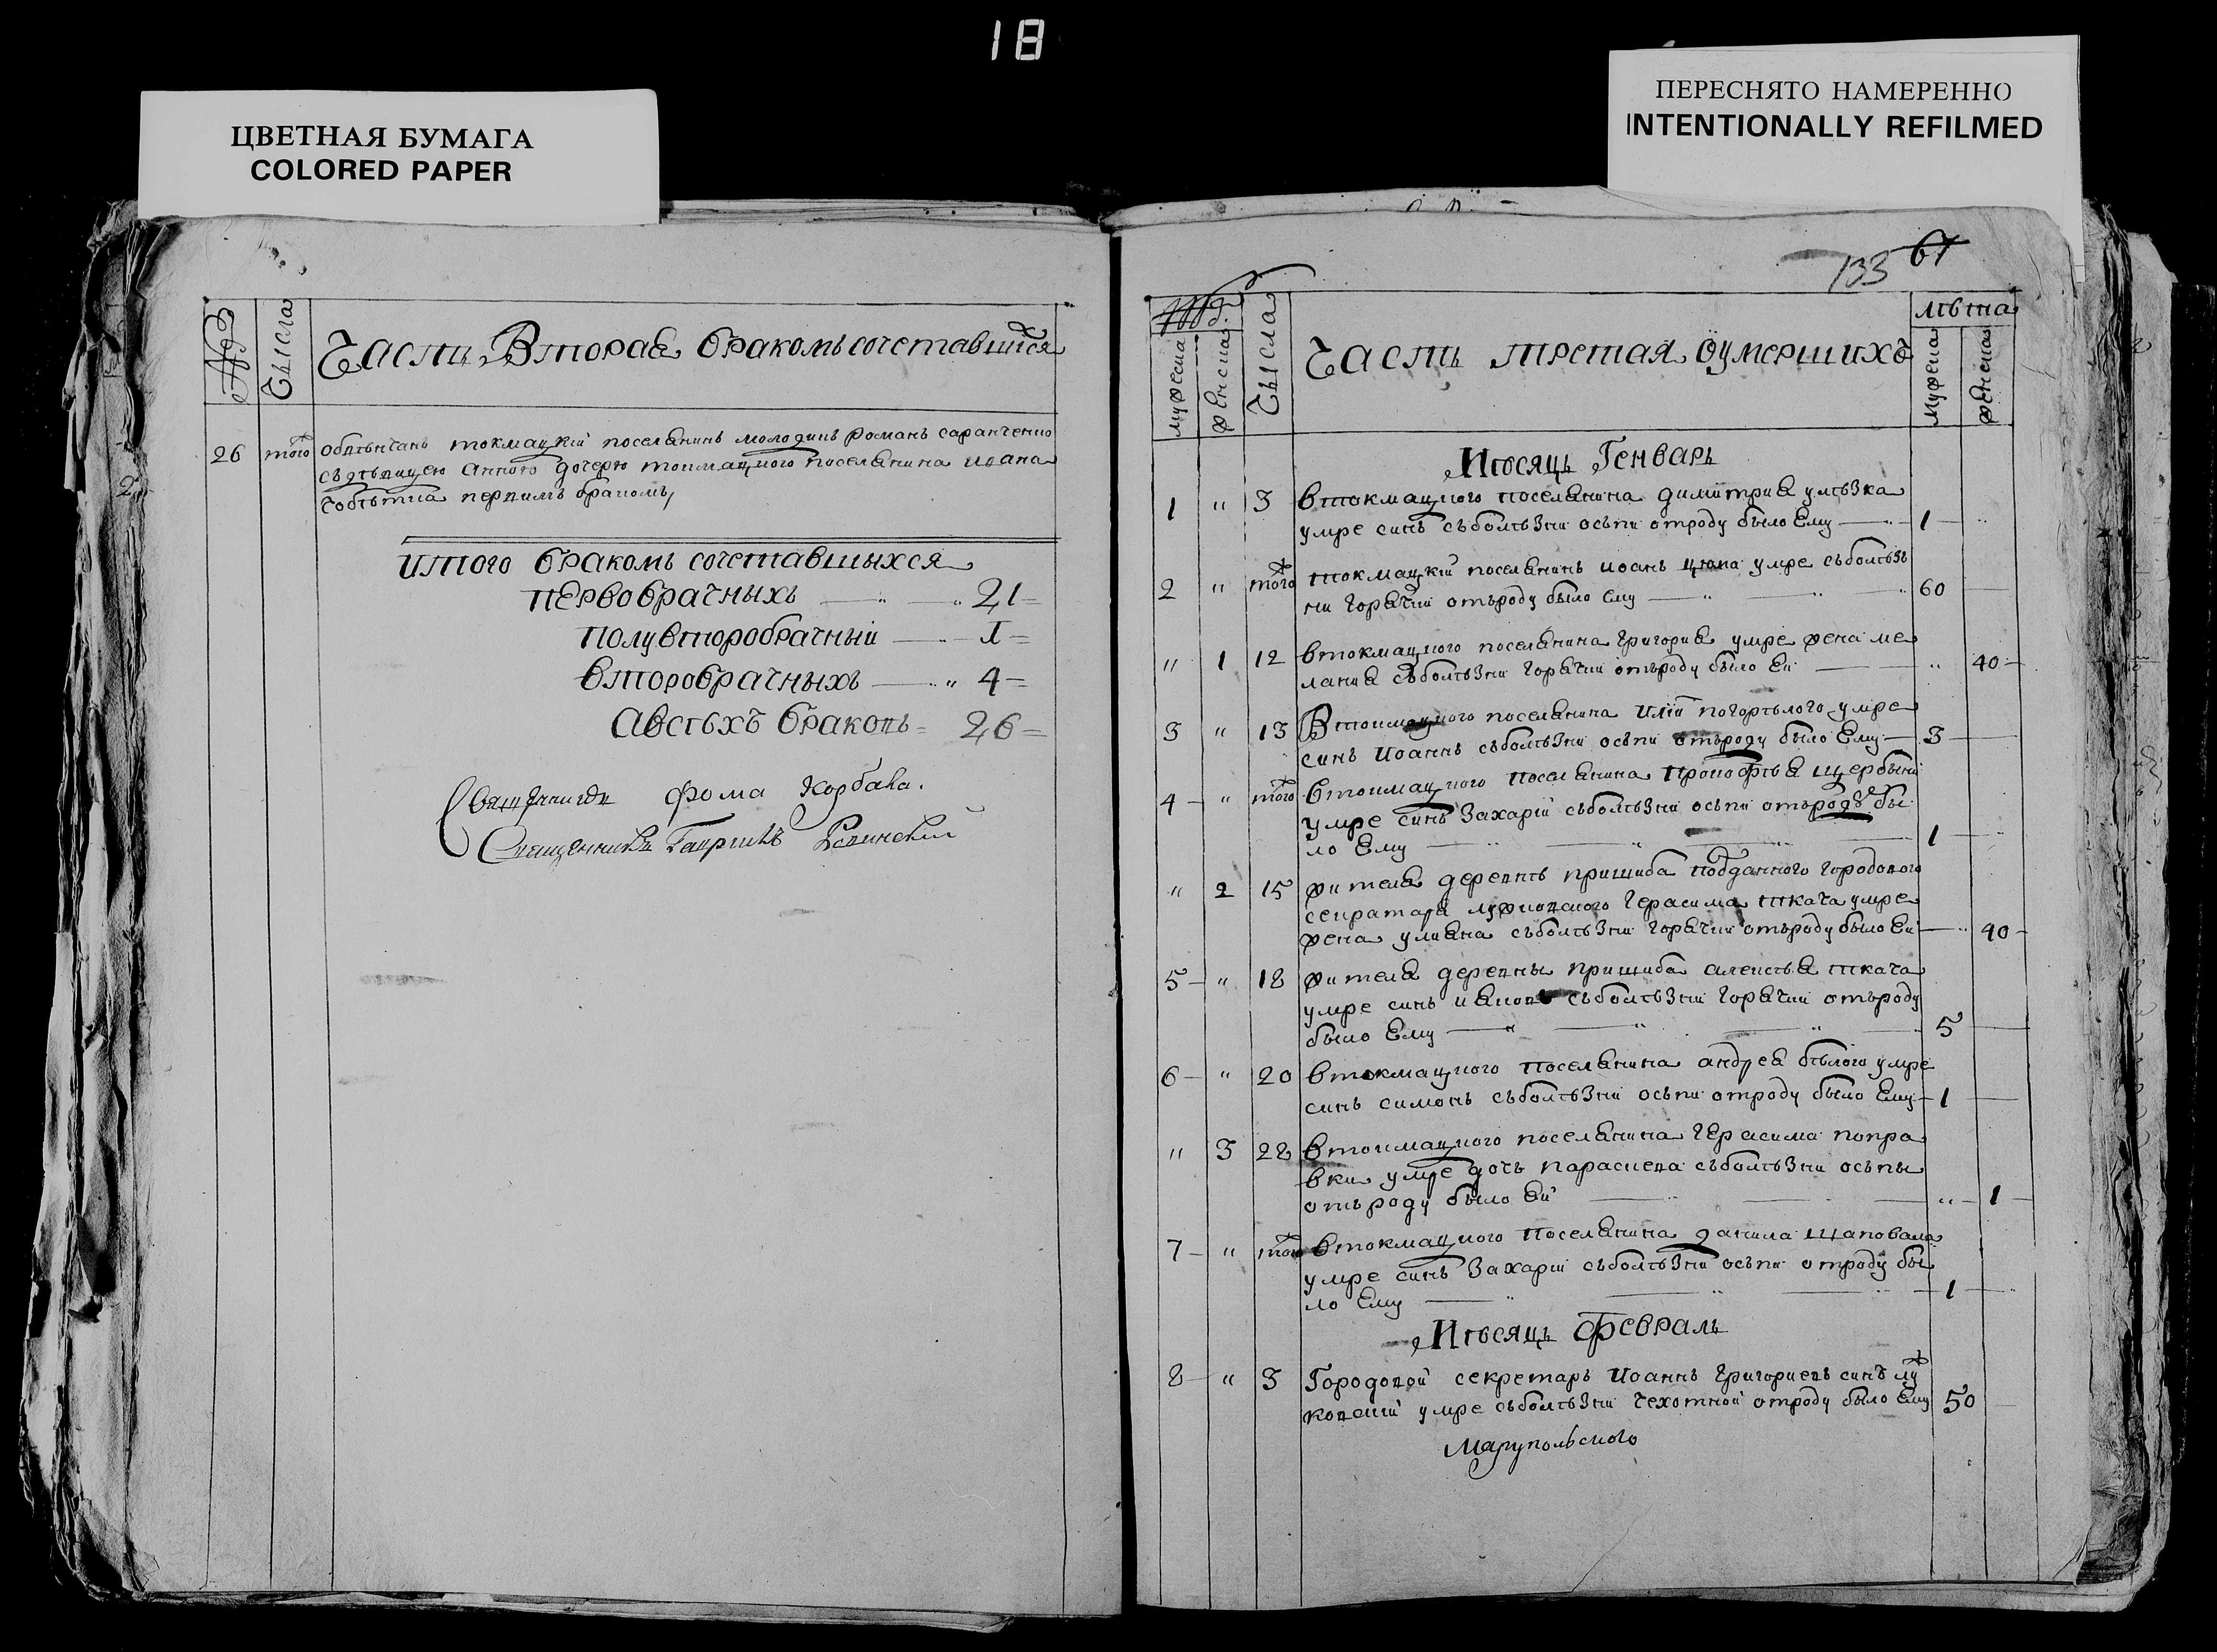 18
ЦВЕТНАЯ БУМАГА
COLORED PAPER
ПЕРЕСНЯТО НАМЕРЕННО
INTENTIONALLY REFILMED
Числа
Часть Вторая бракомъ сочетавшихся
26 того обвѣнчанъ токмацкій поселянинъ молодикъ романъ саранченко
съ дѣвицею анною дочерю токмацкого поселянина иоана
первимъ бракомъ,
итого бракомъ сочетавшыхся
первобрачныхъ 21
полувторобрачний 1
второбрачныхъ 4
а всѣхъ браковъ 26
Священникъ фома корбава.
Священникъ Гавриилъ
133 61
мужеска
женска
Числа
Часть третая оумершихъ
лѣта
мужеска
женска
Мѣсяцъ Генварь
1 " 3 в токмацкого поселянина димитрия улѣзка
умре синъ съ болѣзни осьпи отроду было Ему 1
2 " того токмацкій поселянинъ иоанъ цюпа умре съ болѣзъ
ни горячки отъроду было ему 60
" 1 12 в токмацкого поселянина григория умре жена ме
лания съ болѣзни горячки отъроду было Ей " 40
3 " 13 В токмацкого поселянина Илїи погорѣлого умре
синъ Иоаннъ съ болѣзни осьпи отъроду было Ему 3
4 " того в токмацкого поселянина прокофѣя щербыни
умре синъ Захарій съ болѣзни осьпи отъроду бы
ло Ему 1
" 2 15 жителя деревнѣ пришиба подданного городового
секратаря луковского герасима ткача умре
жена улияна съ болѣзни горячки отъроду было Ей 40
5 " 18 жителя деревны пришиба алексѣя ткача
умре синъ иаковъ съ болѣзни горячки отъроду
было Ему 5
6 " 20 в токмацкого поселянина андрея бѣлого умре
синъ симонъ съ болѣзни осьпи отроду было Ему 1
" 3 28 в токмацкого поселянина герасима попра
вки умре дочь параскева съ болѣзни осьпы
отъроду было Ей " 1
7 " того в токмацкого поселянина данила шаповала
умре синъ Захарій съ болѣзни осьпи отроду бы
ло Ему 1
Мѣсяцъ Февраль
8 " 3 Городовой секретарь Иоаннъ григориевъ синъ лу
ковский умре съ болѣзни чехотной отроду было Ему 50
Марупольского